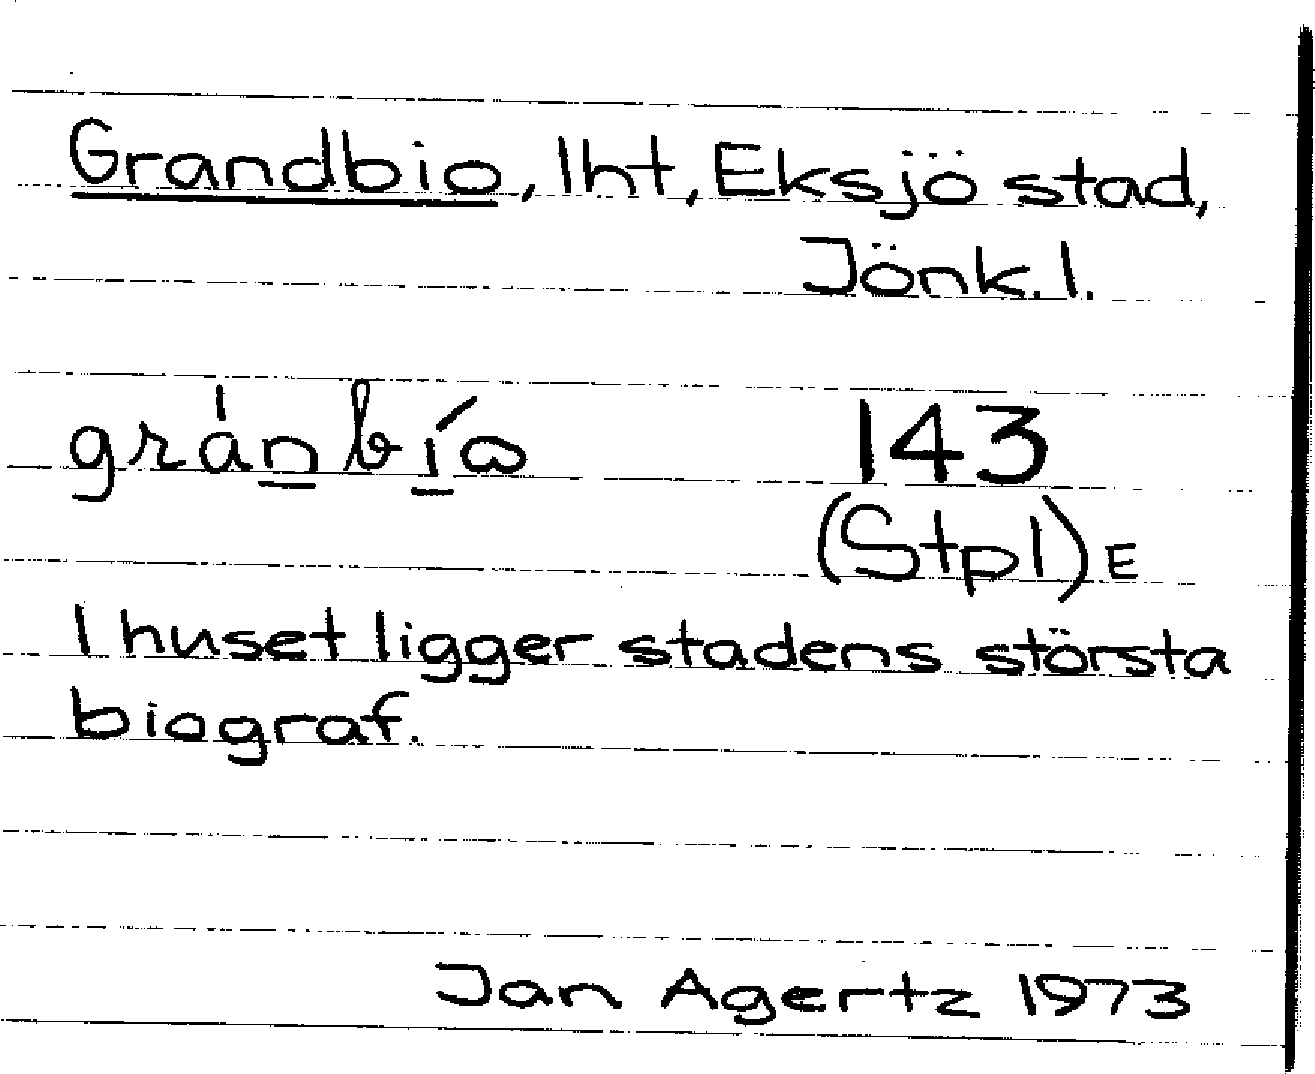 Grandbio, lht, Eksjö stad,
Jönk. l.
gránbío 143
(Stpl) E
I huset ligger stadens största
biograf.
Jan Agertz 1973